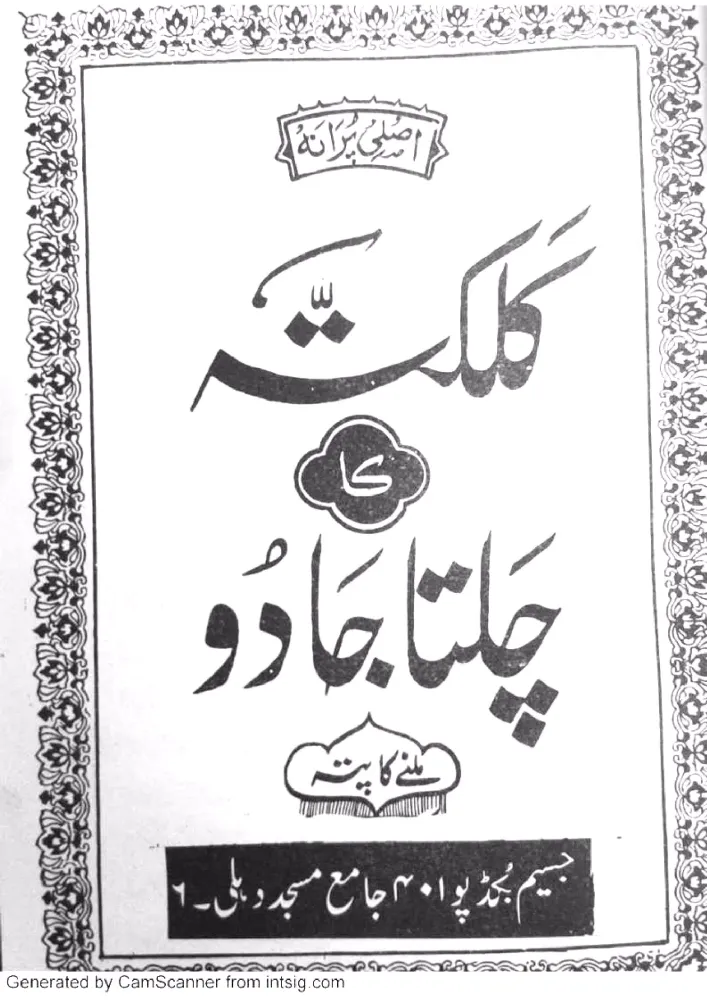 اصلی پُرانہ
کلکتّہ
کا
چلتا جادُو
ملنے کا پتہ
جسیم بُکڈپو ۴۰۱ جامع مسجد دہلی۔۶
Generated by CamScanner from intsig.com